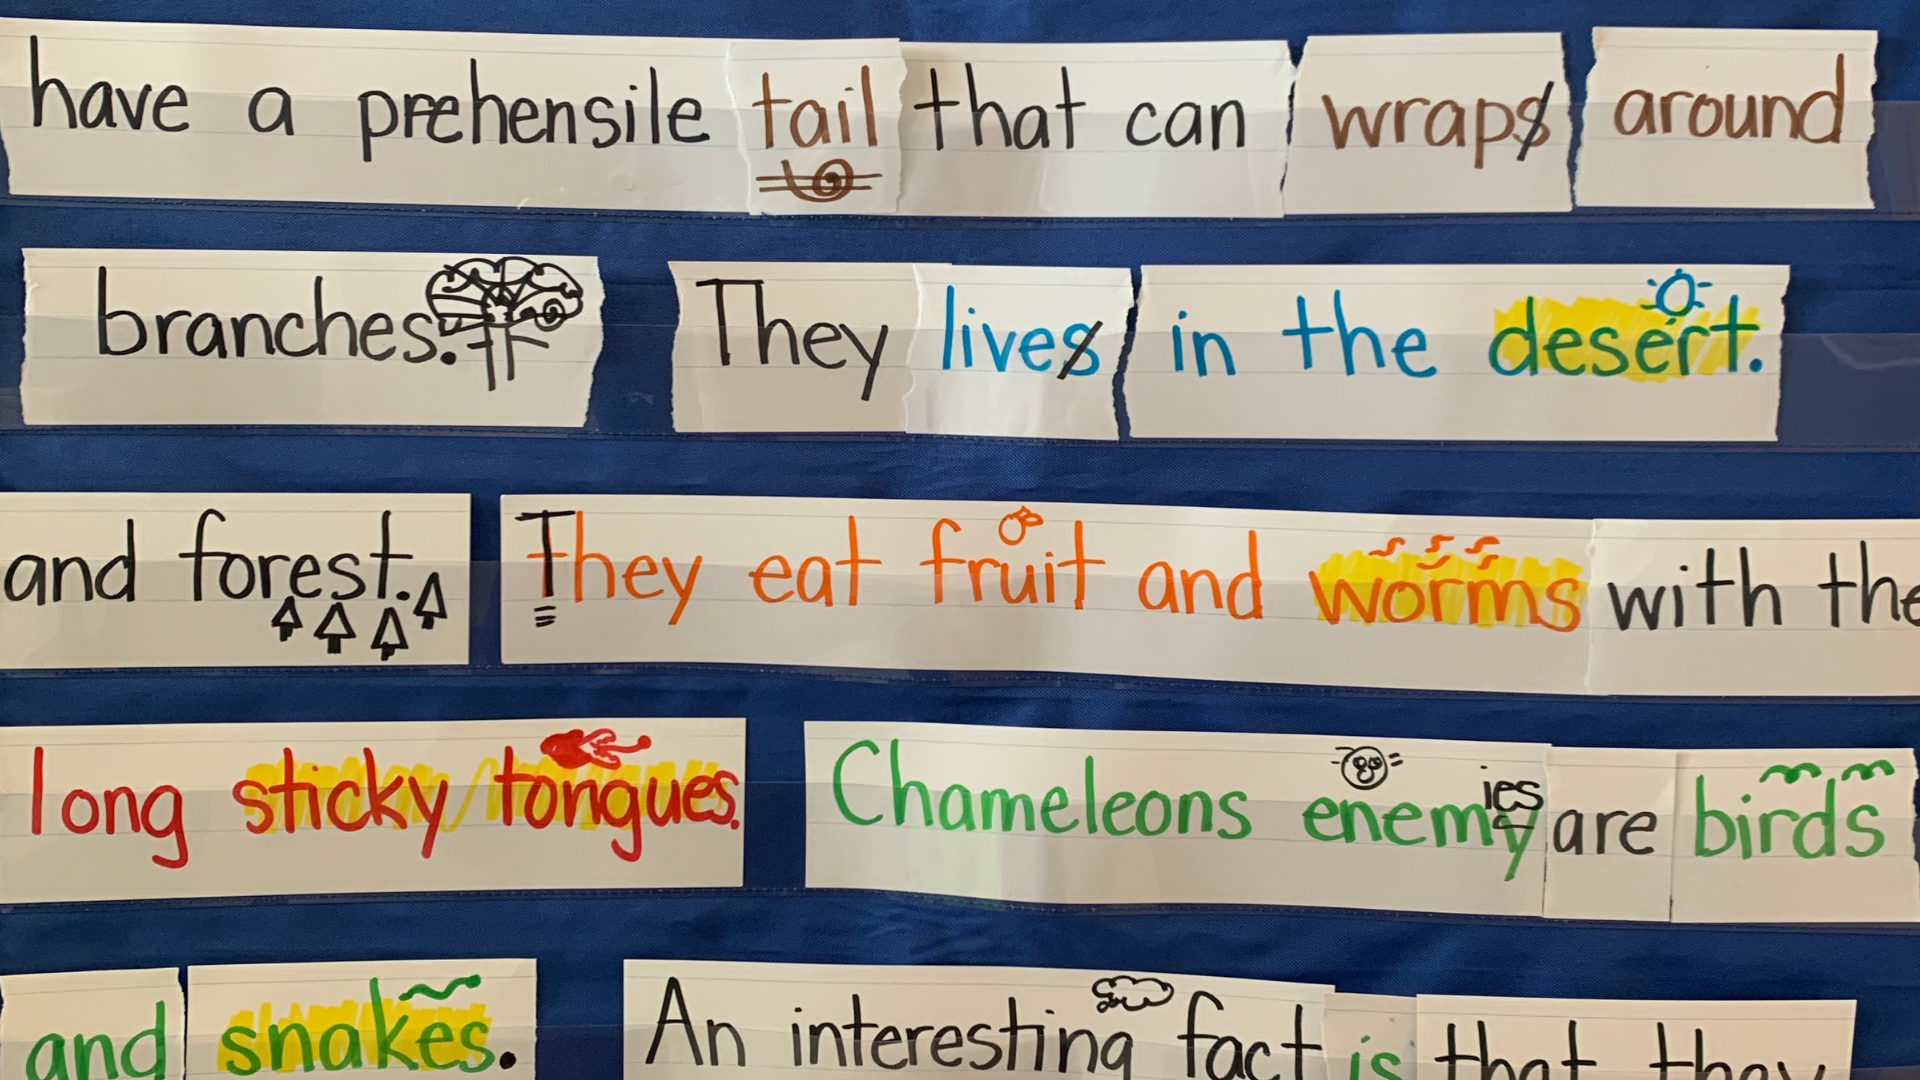 have a prehensile tail that can wraps around
branches. They lives in the desert.
and forest. They eat fruit and worms with the
long sticky tongues. Chameleons enemy ies are birds
and snakes. An interesting fact is that they